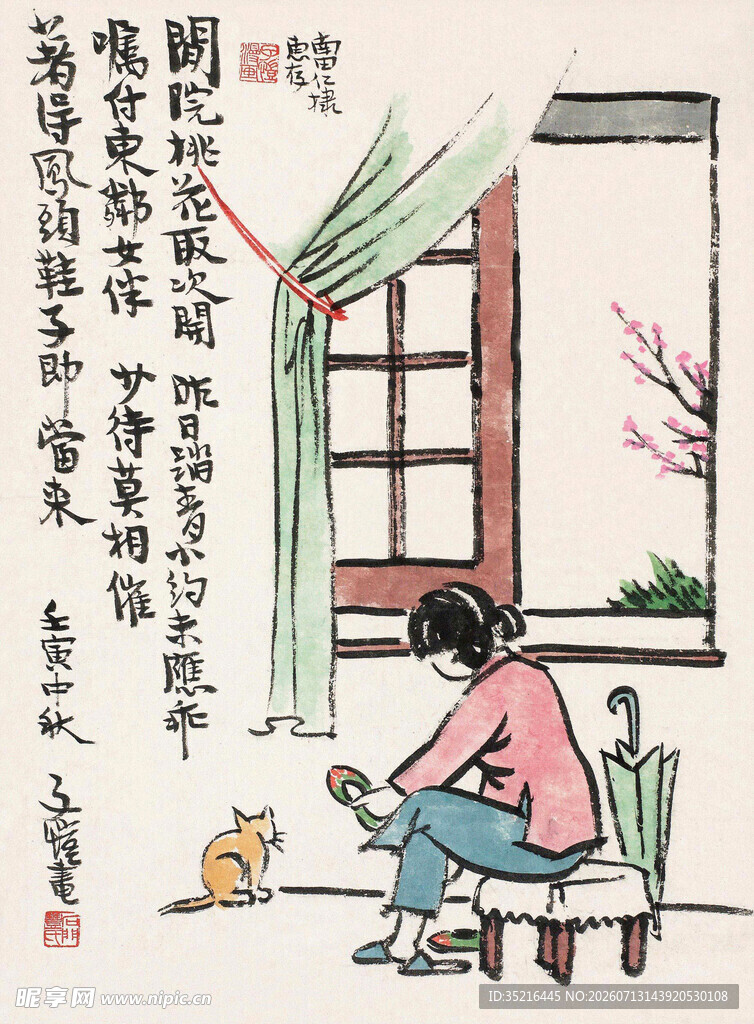 閒院桃花取次開 昨日踏青小約未應乖
嘱付東鄰女伴 少待莫相催
著得鳳頭鞋子即當来
壬寅中秋 子愷畫
南田仁棣
惠存
昵享网 www.nipic.cn
ID:35216445 NO:20260713143920530108